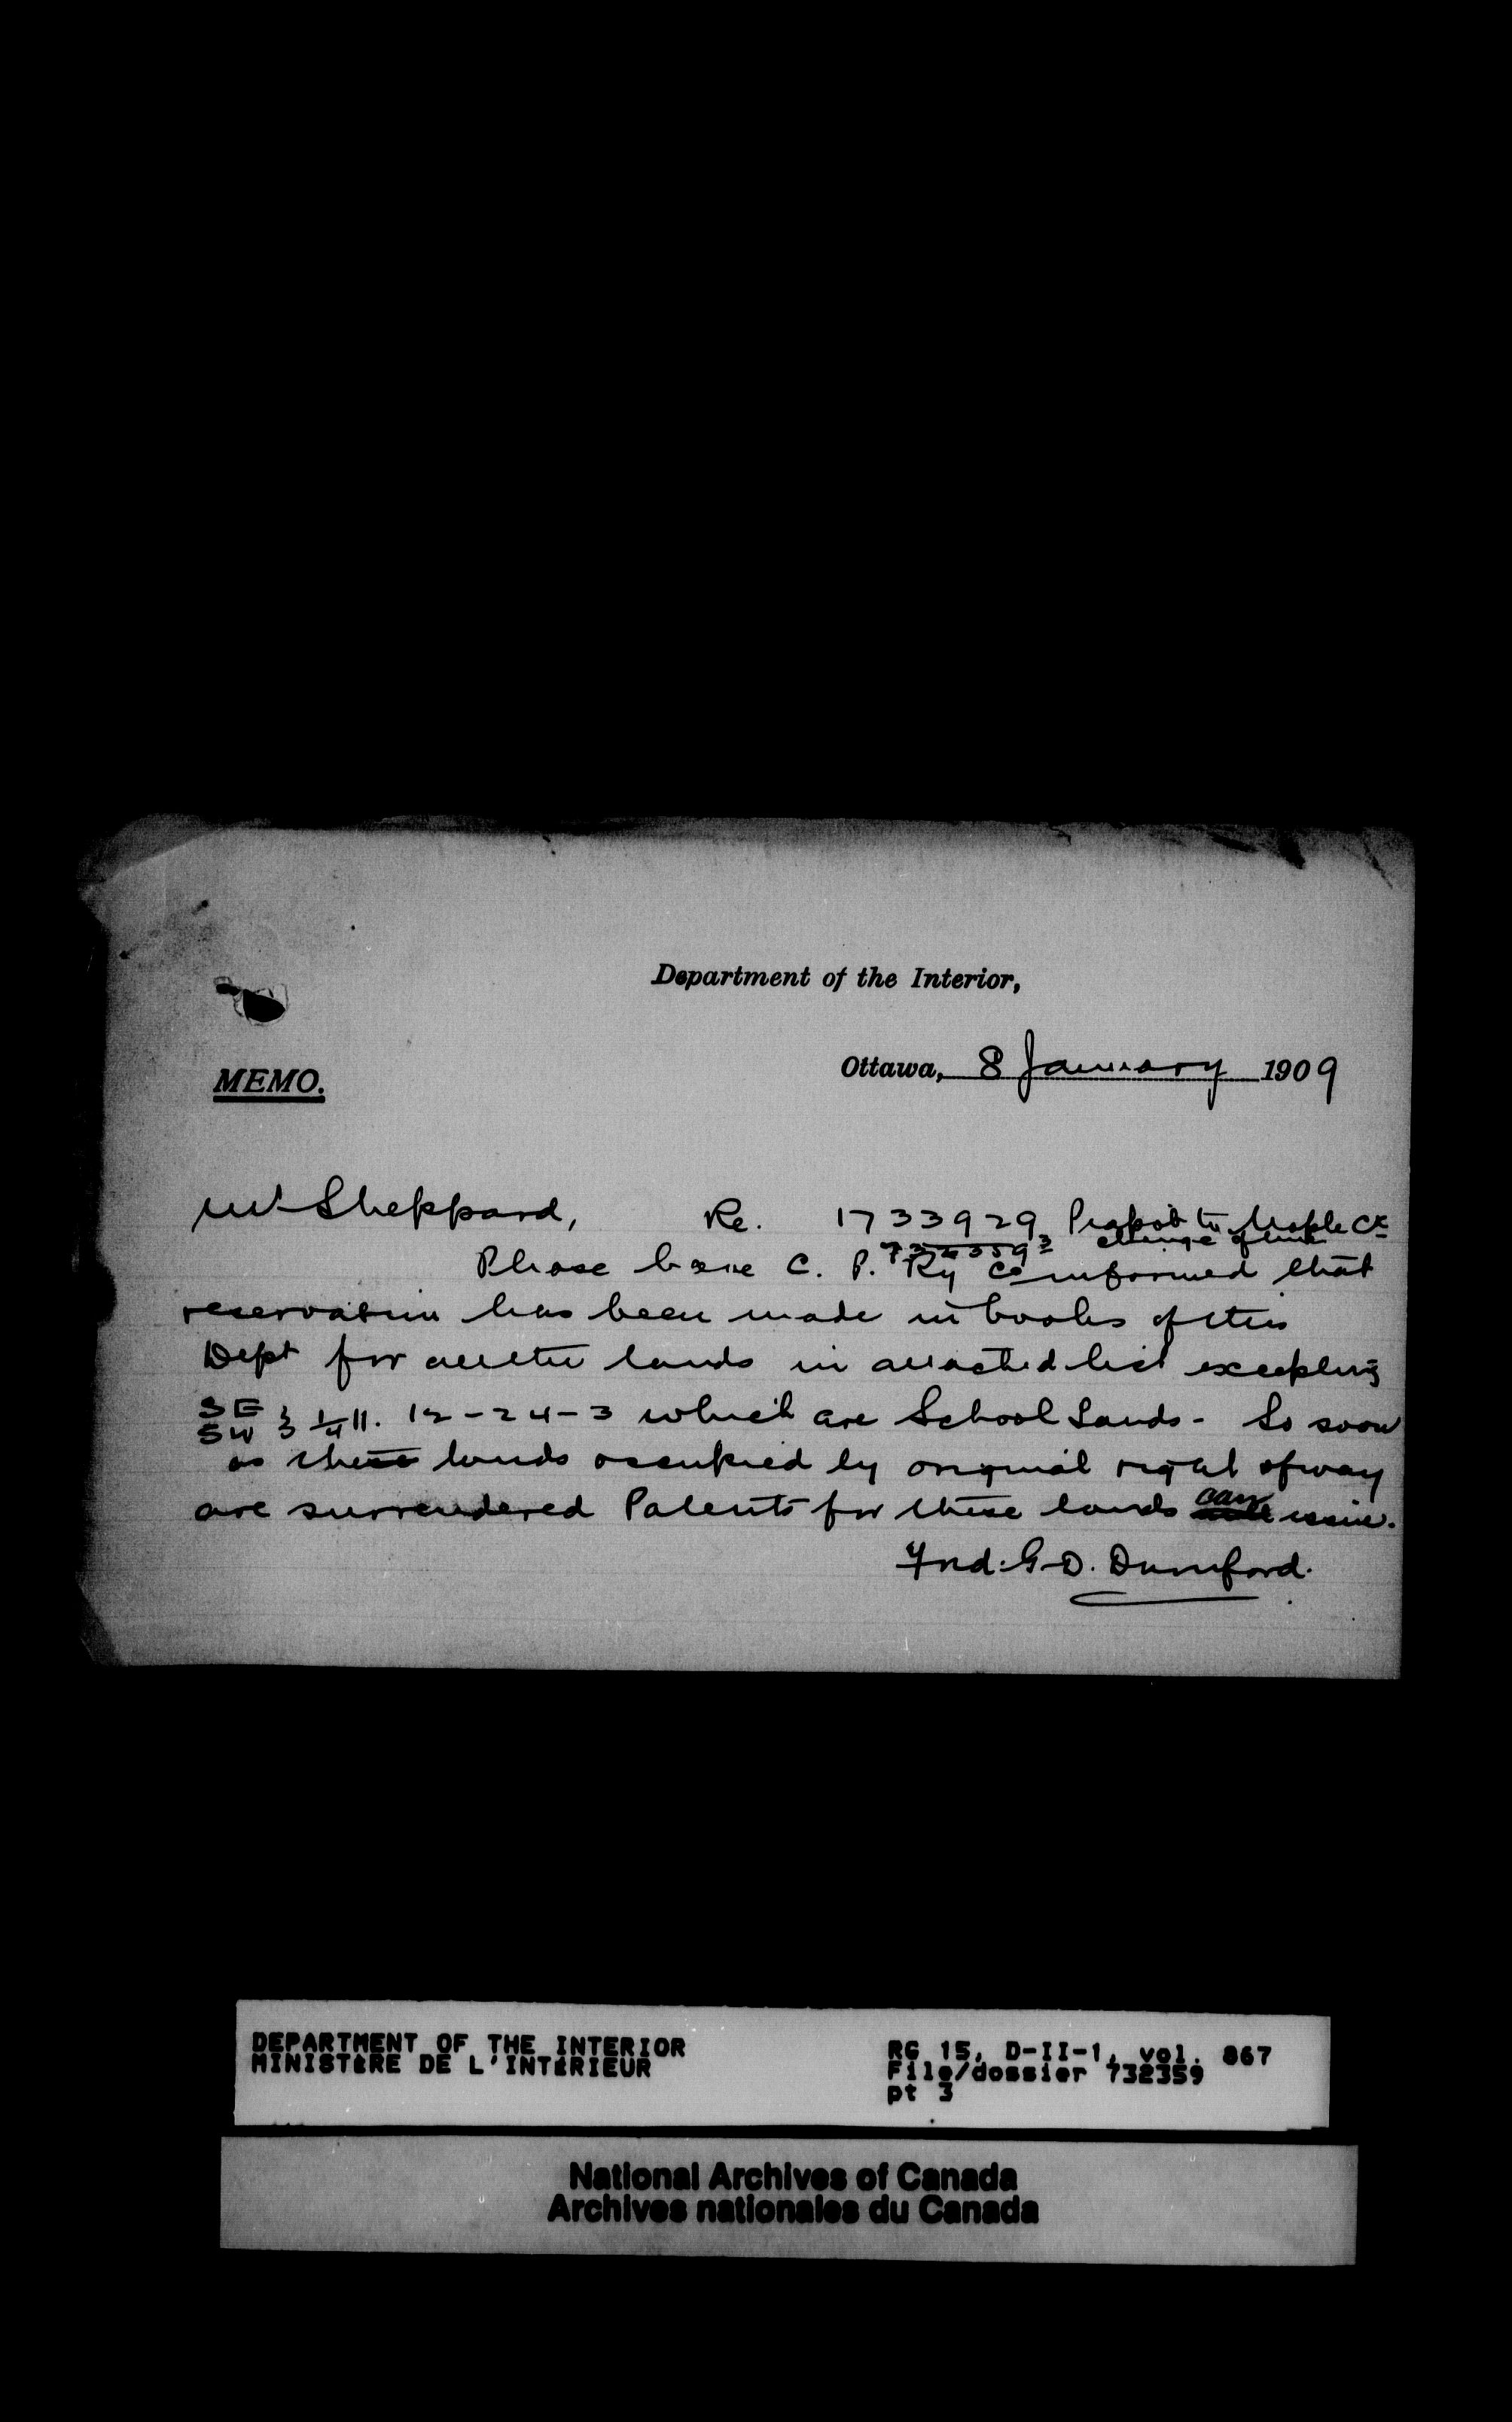 Department of the Interior,
Ottawa, 8 January 1909
MEMO.
Mr Sheppard, Re. 1733929 to Maple Ck
732359 3 change of line
Please have C. P. Ry Co informed that
reservation has been made in books of this
Dept for all the lands in attached list excepting
SE
SW } 1/4 11. 12-24-3 which are School Lands - So soon
as these lands occupied by original right of way
are surrendered Patents for these lands can issue.
G. D. Durnford.
DEPARTMENT OF THE INTERIOR
MINISTÈRE DE L'INTÉRIEUR
RG 15, D-II-1, vol. 867
File/dossier 732359
pt 3
National Archives of Canada
Archives nationales du Canada